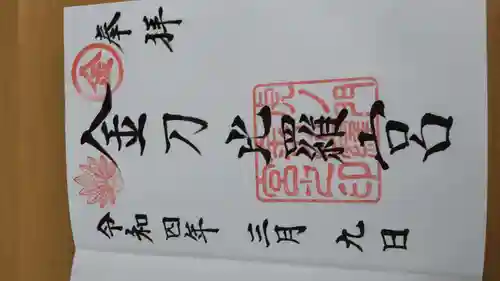 奉拝
金
金刀比羅宮
虎ノ門
宮之印
令和四年三月九日